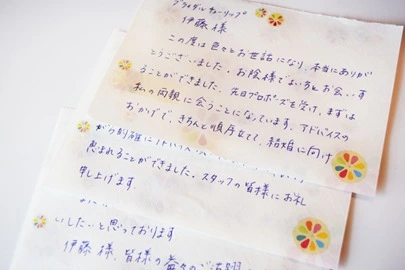 ブライダルチューリップ
伊藤様
この度は色々とお世話になり、本当にありが
とうございました。お陰様でよい方とお会いす
ることができました。先日プロポーズを受け、まずは
私の両親に会うことになっています。アドバイスの
おかげで、きちんと順序立てて、結婚に向け
恵まれることができました。スタッフの皆様にお礼
申し上げます。
いしたいと思っております
伊藤様、皆様の益々のご活躍